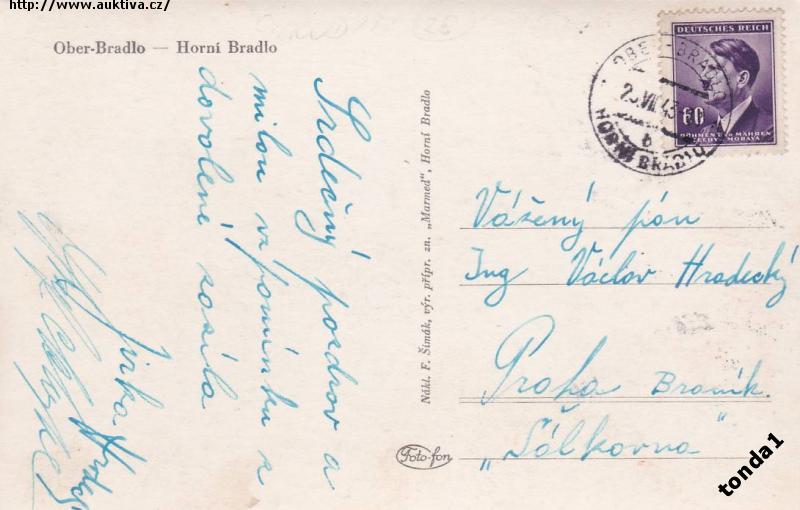 http://www.auktiva.cz/
Ober-Bradlo — Horní Bradlo
Srdečný pozdrav a
milou vzpomínku z
dovolené zasílá
Jirka
Nákl. F. Šimák, výr. přípr. zn. „Marmed", Horní Bradlo
Foto-fon
DEUTSCHES REICH
60
BÖHMEN u. MÄHREN
ČECHY a MORAVA
OBER-BRADLO
VII 43
b
HORNÍ BRADLO
Vážený pán
Ing Václav Hradecký
Praha Braník.
„Sálkovna"
tonda1